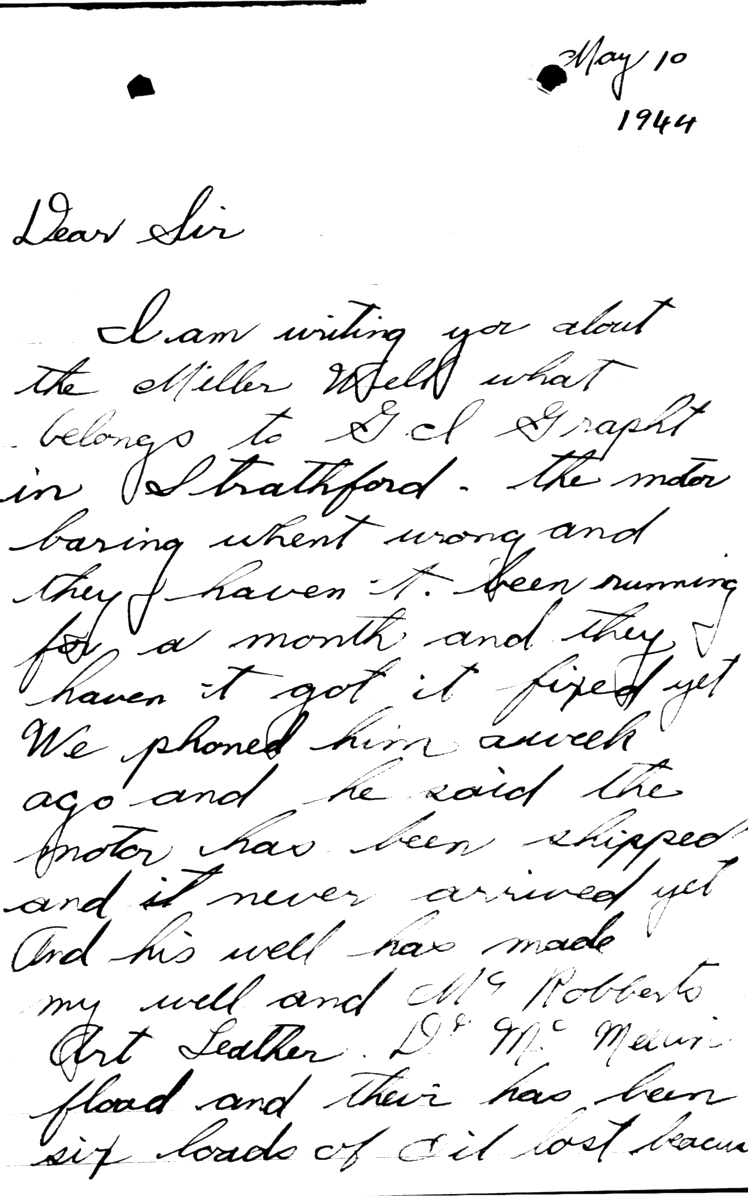 May 10
1944
Dear Sir
I am writing you about
the Miller Well what
belongs to G I Grapht
in Strathford. the motor
baring whent wrong and
they haven't been running
for a month and they
haven't got it fixed yet
We phoned him a week
ago and he said the
motor has been shipped
and it never arrived yet
And his well has made
my well and Mr Robberts
Art Leather. Dr Mc
flood and their has been
six loads of oil lost